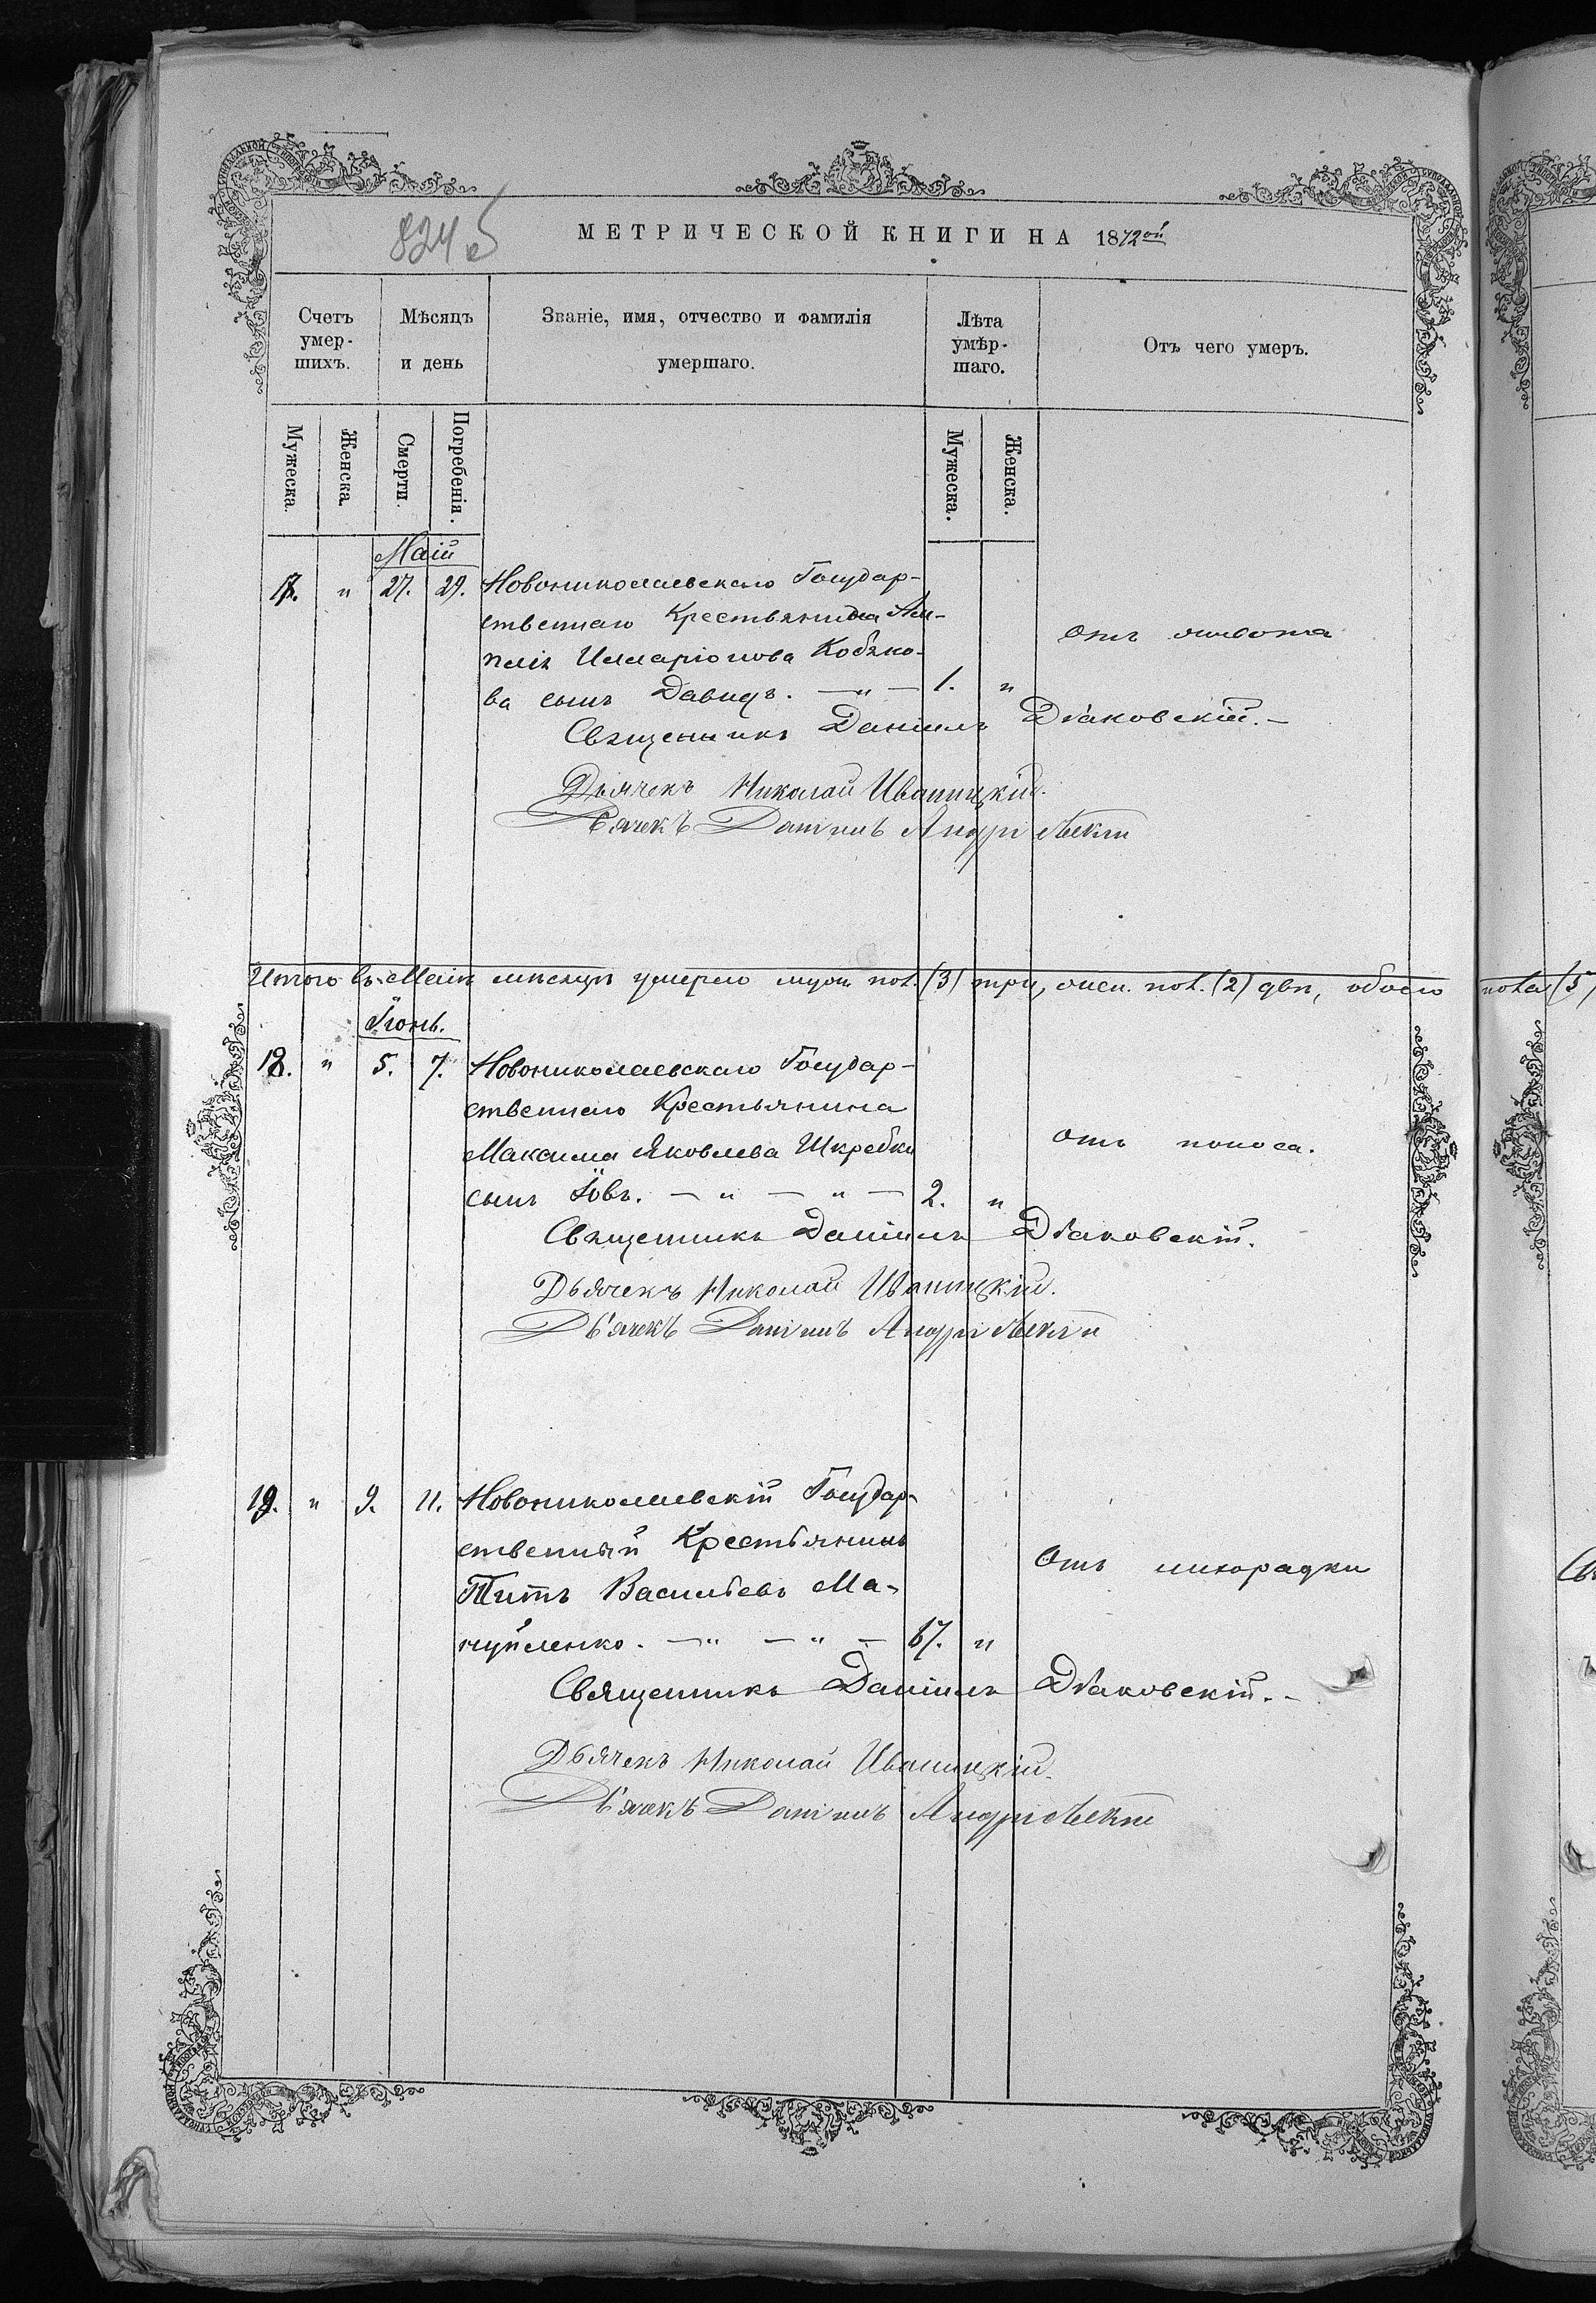 824 об
МЕТРИЧЕСКОЙ КНИГИ НА 1872ой
Счетъ умер-шихъ.
Мѣсяцъ и день
Званіе, имя, отчество и фамилія умершаго.
Лѣта умѣр-шаго.
Отъ чего умеръ.
Мужеска.
Женска.
Смерти.
Погребенія.
Мужеска.
Женска.
Маій
17. " 27. 29. Новониколаевскаго Государ-
ственнаго Крестьянина
Илларіонова Кобзко- отъ живота
ва сынъ Давидъ. — " — 1. "
Священникъ Даніилъ Дьяковскій.-
Дьячекъ Николай Иваницкій.
Дьячекъ Даніилъ
Итого въ Маіѣ мѣсяцѣ умерло муж. пол. (3) три, жен. пол. (2) двѣ, обоего пола (5)
Іюнь.
18. " 5. 7. Новониколаевскаго Государ-
ственнаго Крестьянина
Максима Яковлева Шкребки отъ поноса.
сынъ Іовъ. — " — " — 2. "
Священникъ Даніилъ Дьяковскій.
Дьячекъ Николай Иваницкій.
Дьячекъ Даніилъ
19. " 9. 11. Новониколаевскій Государ-
ственный Крестьянинъ
Титъ Васильевъ Ма- Отъ лихорадки
нуйленко. — " — " — 67. "
Священникъ Даніилъ Дьяковскій.-
Дьячекъ Николай Иваницкій.
Дьячекъ Даніилъ